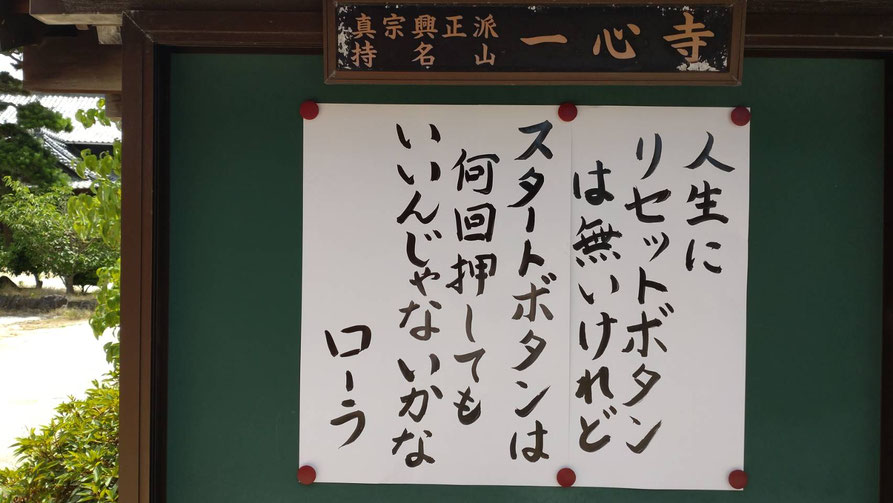 真宗興正派
持名山
一心寺
人生に
リセットボタン
は無いけれど
スタートボタンは
何回押しても
いいんじゃないかな
ローラ